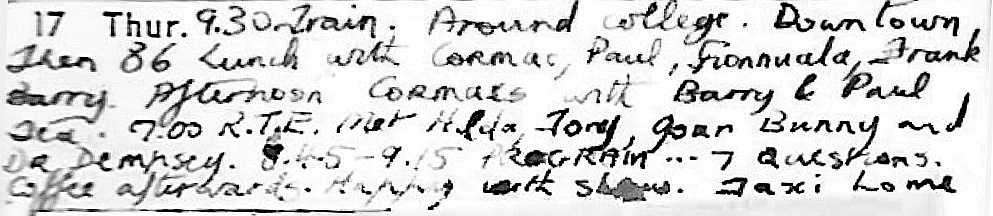 17 Thur. 9.30 Train. Around College. Downtown,
Then 86 Lunch with Cormac, Paul, Fionnuala, Frank
Barry. Afternoon Cormacs with Barry & Paul,
Tea. 7.00 R.T.E. Met Hilda, Tony, Joan Bunny and
Da Dempsey. 8.45-9.15 PROGRAM ... 7 Questions.
Coffee afterwards. Happy with show. Taxi home